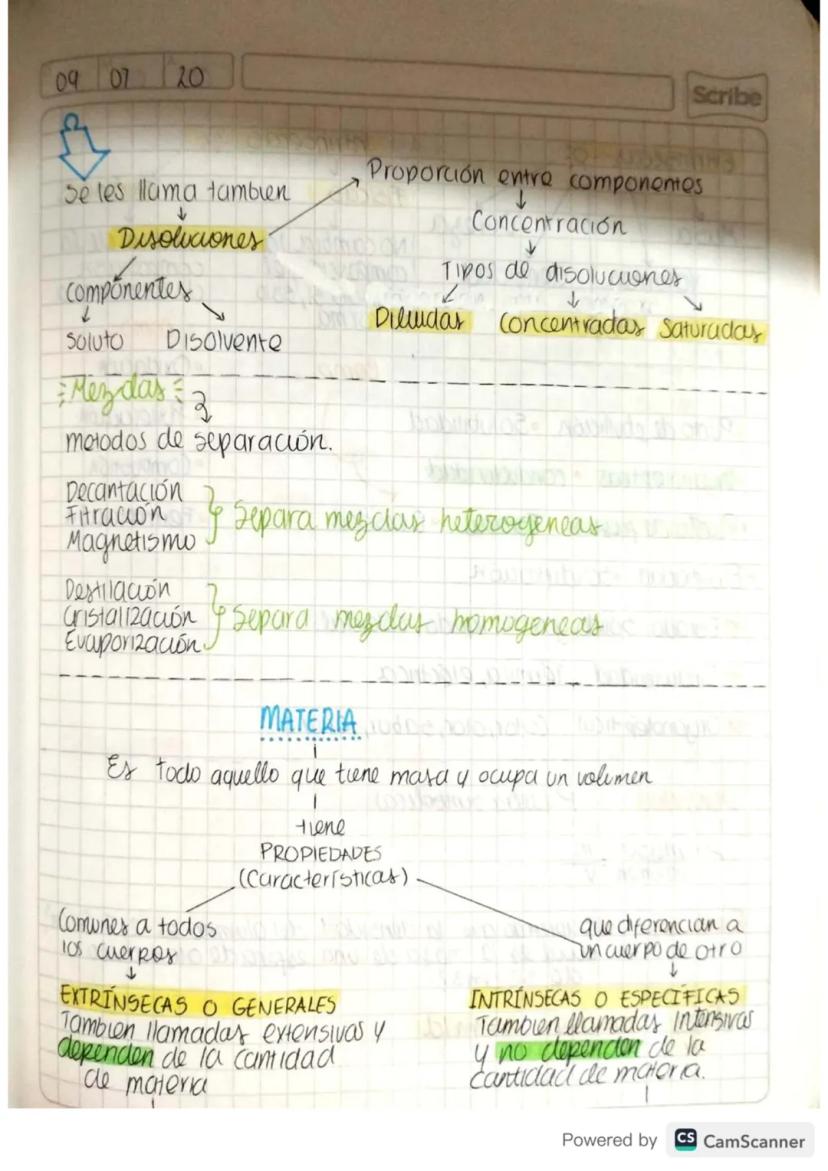 09 07 20
Scribe
Se les llama tambien
Disoluciones
componentes
soluto Disolvente
Proporción entre componentes
Concentración
Tipos de disoluciones
Diluidas Concentradas Saturadas
Mezclas
metodos de separación.
Decantación
Fitración
Magnetismo
Separa mezclas heterogeneas
Destilación
Cristalización
Evaporización
Separa mezclas homogeneas
MATERIA
Es todo aquello que tiene masa y ocupa un volimen
tiene
PROPIEDADES
(Características)
Comunes a todos
los cuerpos
EXTRÍNSECAS O GENERALES
Tambien llamadas extensivas y
dependen de la cantidad
de materia
que diferencian a
un cuerpo de otro
INTRÍNSECAS O ESPECÍFICAS
Tambien llamadas Intensivas
y no dependen de la
Cantidad de materia.
Powered by CS CamScanner